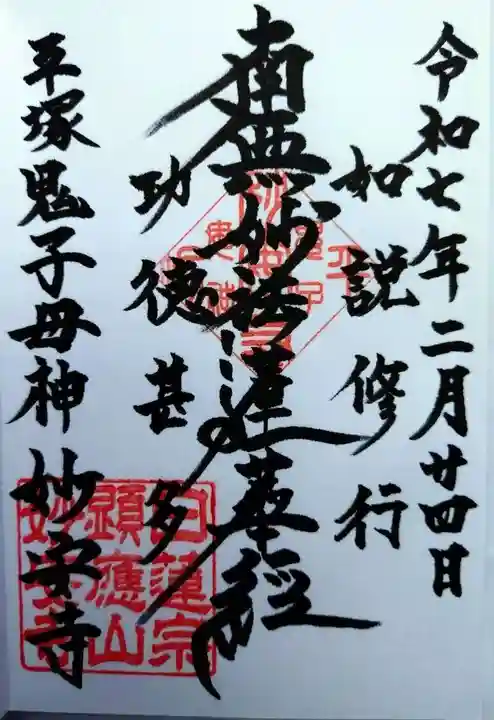 令和七年二月廿四日
如説修行
南無妙法蓮華経
功徳甚多
平塚鬼子母神 妙安寺
日蓮宗
顕應山
妙安寺